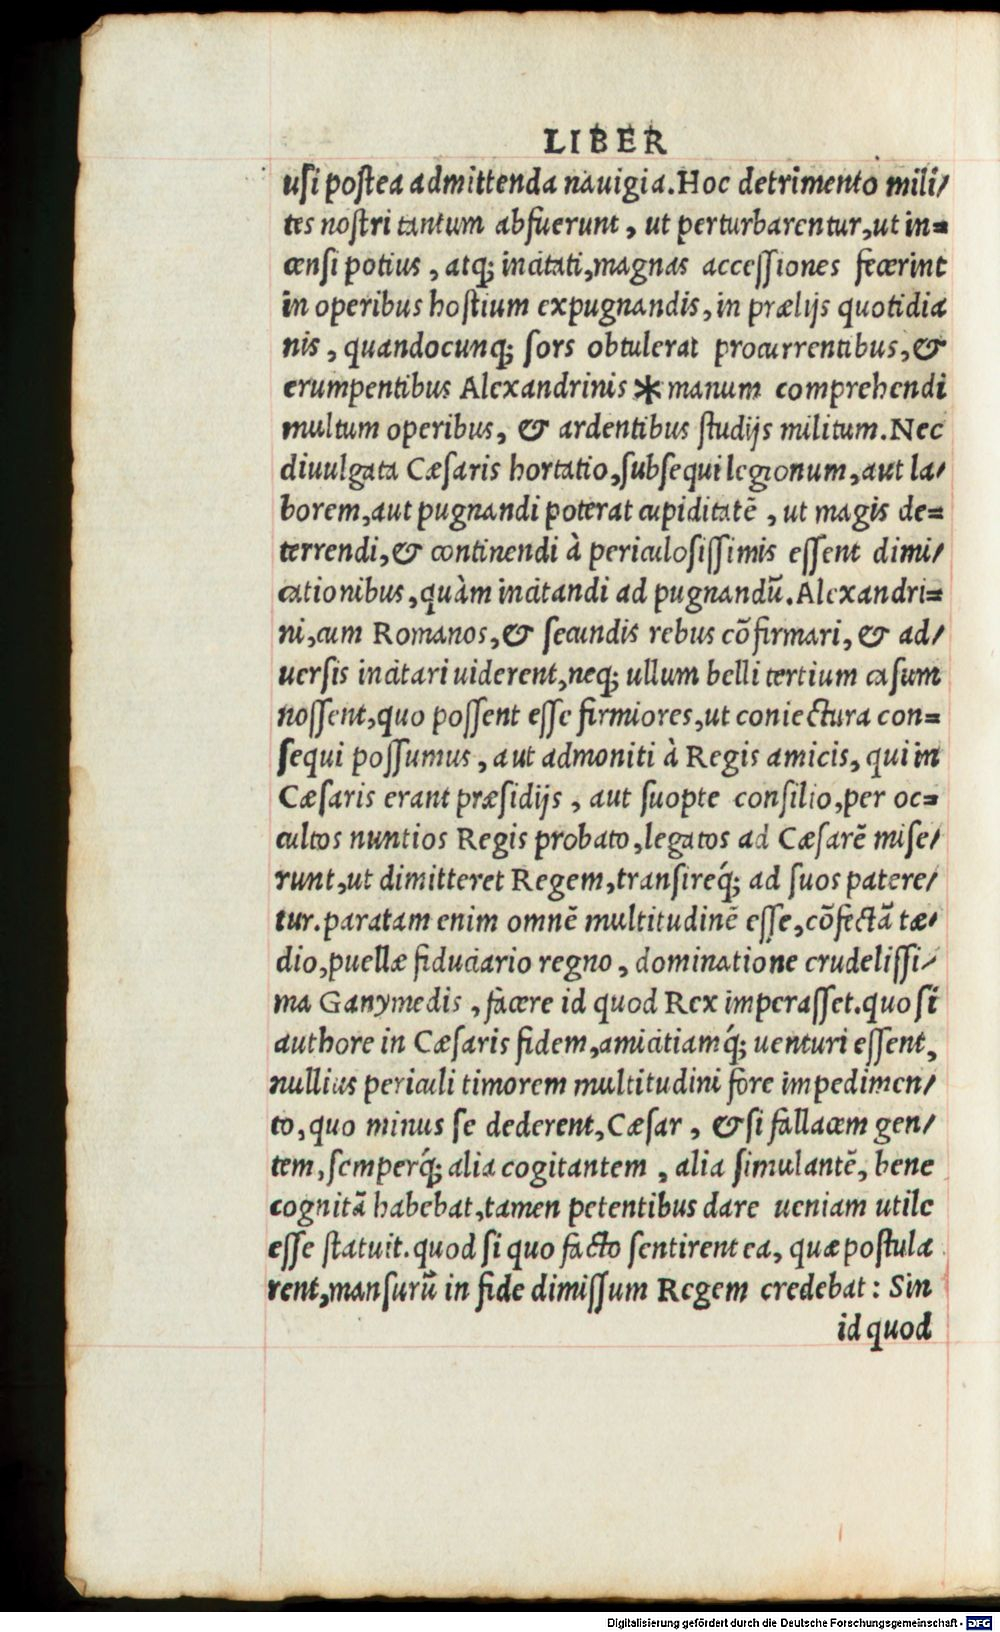 LIBER
uſi poſtea admittenda nauigia. Hoc detrimento mili/
tes noſtri tantum abfuerunt, ut perturbarentur, ut in=
cenſi potius, atq; incitati, magnas acceſſiones fecerint
in operibus hoſtium expugnandis, in prælijs quotidia
nis, quandocunq; ſors obtulerat procurrentibus, &
erumpentibus Alexandrinis * manum comprehendi
multum operibus, & ardentibus ſtudijs militum. Nec
diuulgata Cæſaris hortatio, ſubſequi legionum, aut la/
borem, aut pugnandi poterat cupiditatē, ut magis de=
terrendi, & continendi à periculoſiſſimis eſſent dimi/
cationibus, quàm incitandi ad pugnandū. Alexandri=
ni, cum Romanos, & ſecundis rebus cōfirmari, & ad/
uerſis incitari uiderent, neq; ullum belli tertium caſum
noſſent, quo poſſent eſſe firmiores, ut coniectura con=
ſequi poſſumus, aut admoniti à Regis amicis, qui in
Cæſaris erant præſidijs, aut ſuopte conſilio, per oc=
cultos nuntios Regis probato, legatos ad Cæſarē miſe/
runt, ut dimitteret Regem, tranſireq́; ad ſuos patere/
tur. paratam enim omnē multitudinē eſſe, cōfectā tæ/
dio, puellæ fiduciario regno, dominatione crudeliſſi/
ma Ganymedis, facere id quod Rex imperaſſet. quo ſi
authore in Cæſaris fidem, amicitiamq́; uenturi eſſent,
nullius periculi timorem multitudini fore impedimen/
to, quo minus ſe dederent, Cæſar, & ſi fallacem gen/
tem, ſemperq́; alia cogitantem, alia ſimulantē, bene
cognitā habebat, tamen petentibus dare ueniam utile
eſſe ſtatuit. quod ſi quo facto ſentirent ea, quæ poſtula
rent, manſurū in fide dimiſſum Regem credebat: Sin
id quod
Digitalisierung gefördert durch die Deutsche Forschungsgemeinschaft - DFG